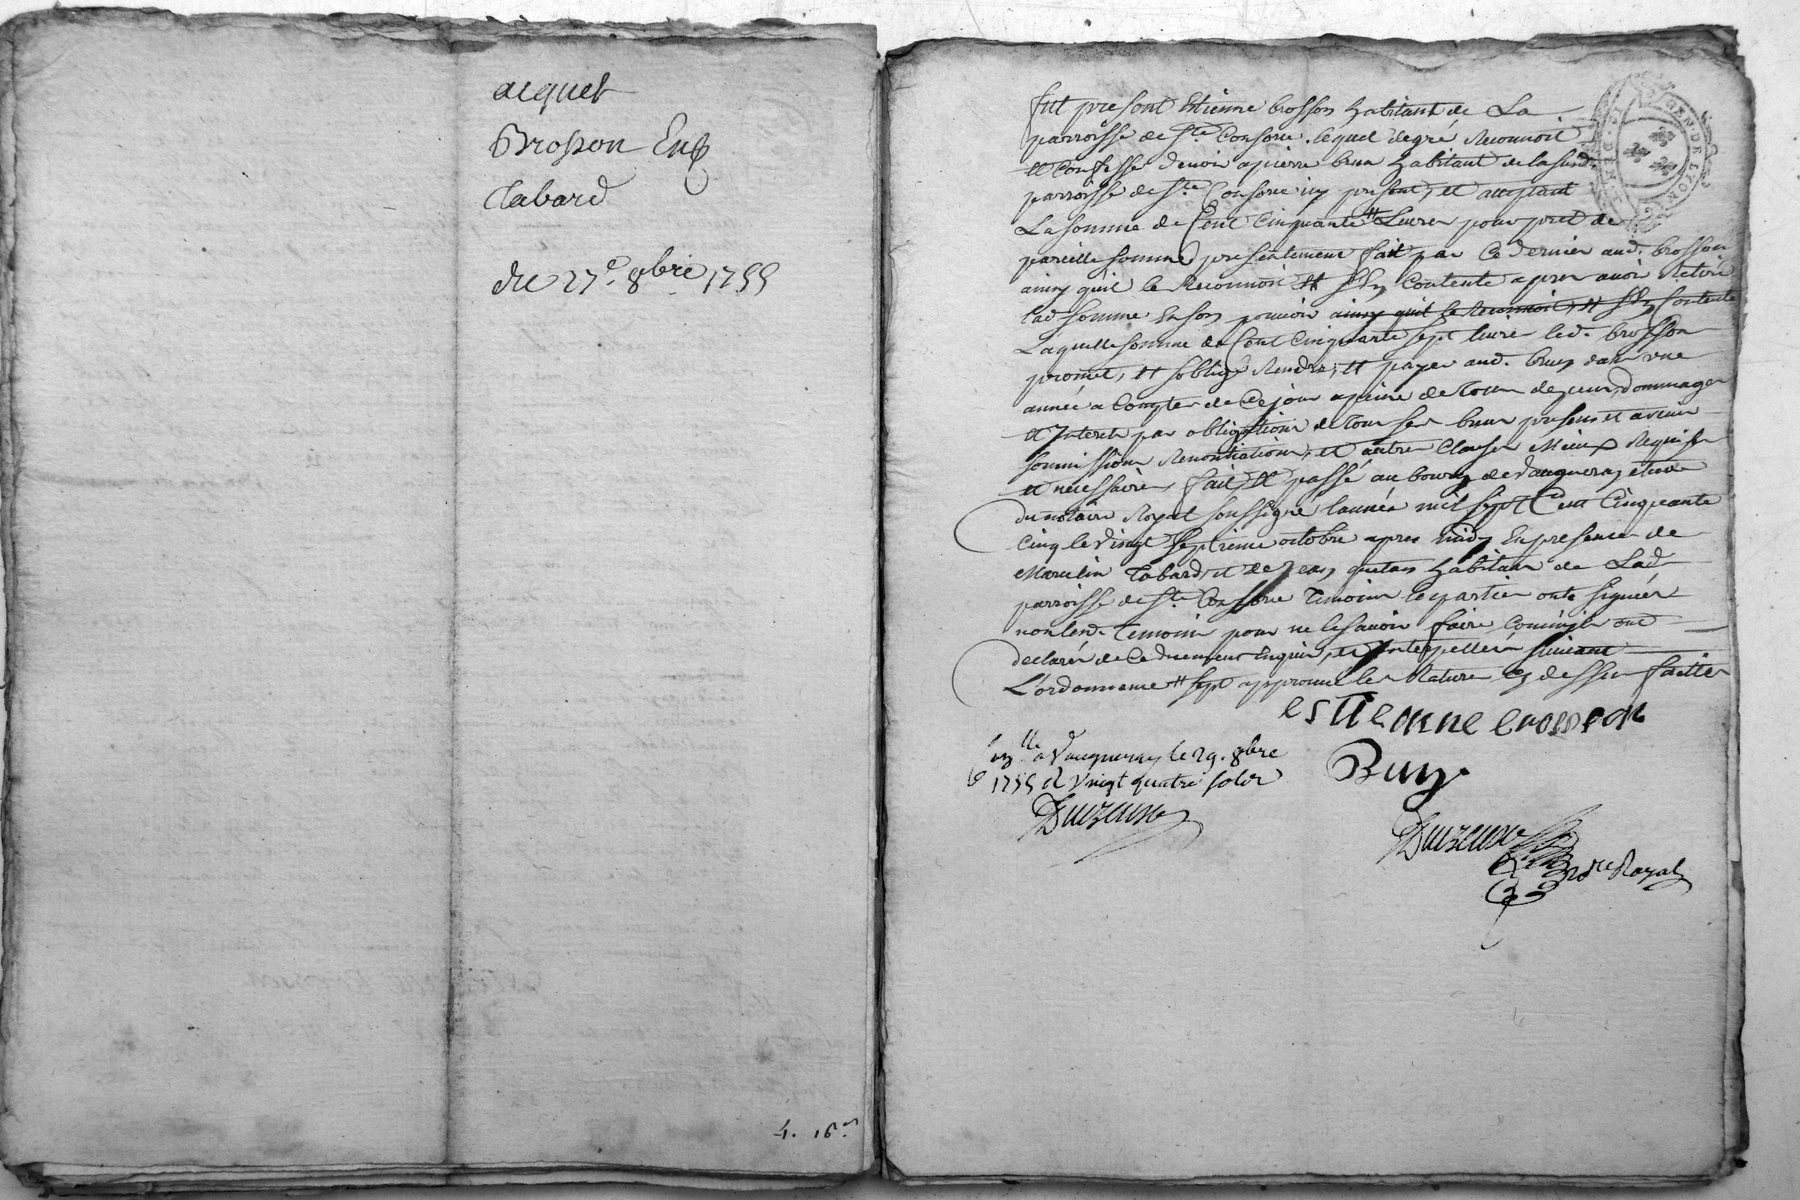 acquet
Brosson Enp
Tabard
du 27e. 8bre 1755
4. 16s
fut present Estienne brosson habitant de La
parroisse de Ste Consorce, lequel de gré Reconnoit
et Confesse devoir a pierre brun habitant de lasusd.
parroisse de Ste Consorce icy present, et acceptant
La somme de Cent Cinquante Livres pour pret de
pareille somme presentement fait par Ce dernier aud. brosson
ainsy quil le Reconnoit et sen Contente apres avoir Retiré
lad somme en son pouvoir ainsy quil le Reconnoit, et sen Contente
Laquelle somme de Cent Cinquante sept livres led. brosson
promet, et soblige Rendre, et payer aud. brun dans une
année a Compter de Ce jour a peine de tous depens, dommages
et Interets par obligations de tous ses biens presens et avenir
soumissions Renontiations, et autres Clauses Mieux Requises
et necessaires, fait et passé au bourg de Vaugneray etude
du notaire Royal soussigné lannée mil sept Cent Cinquante
Cinq le vingt septieme octobre apres midy En presence de
Marcelin Tabard, et de Jean habitans de Lad
parroisse de Ste Consorce Temoins les parties ont signées
non lesd. Temoins pour ne le savoir faire Comm'ils ont
declarés de Ce duement Enquis, et Interpellés suivant
L'ordonnance sept approuvé les Rature Cy dessus faitte
estienne brosson
Brun
a Vaugneray le 29. 8bre
1755 R vingt quatre sols
Duzeune
Duzeune
Nore Royal